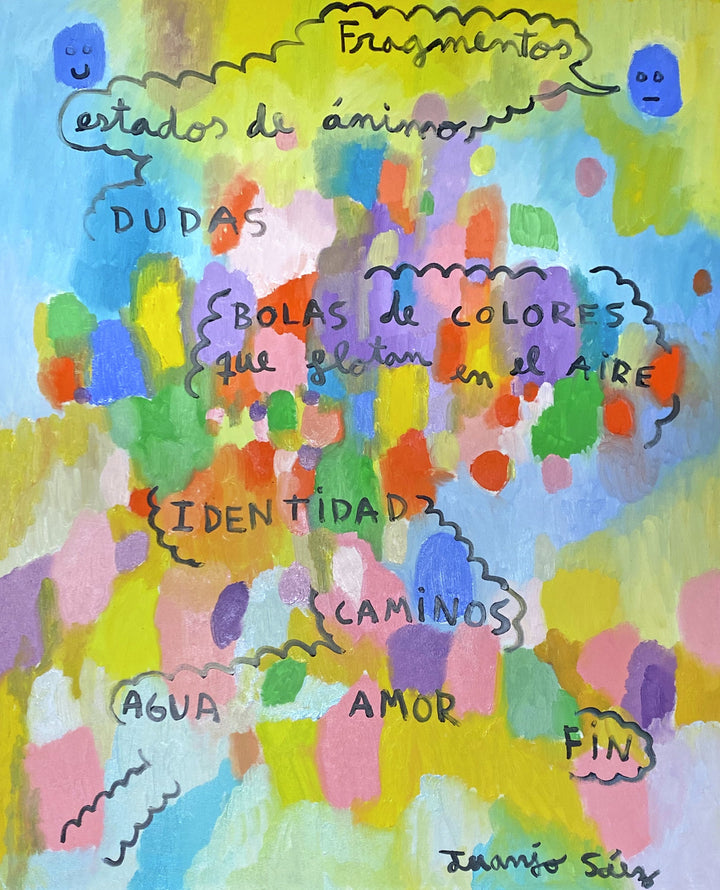 Fragmentos
estados de ánimo,
DUDAS
BOLAS de COLORES
que flotan en el AiRE
IDENTiDAD
CAMiNOS
AGUA AMOR
FiN
Juanjo Sáez